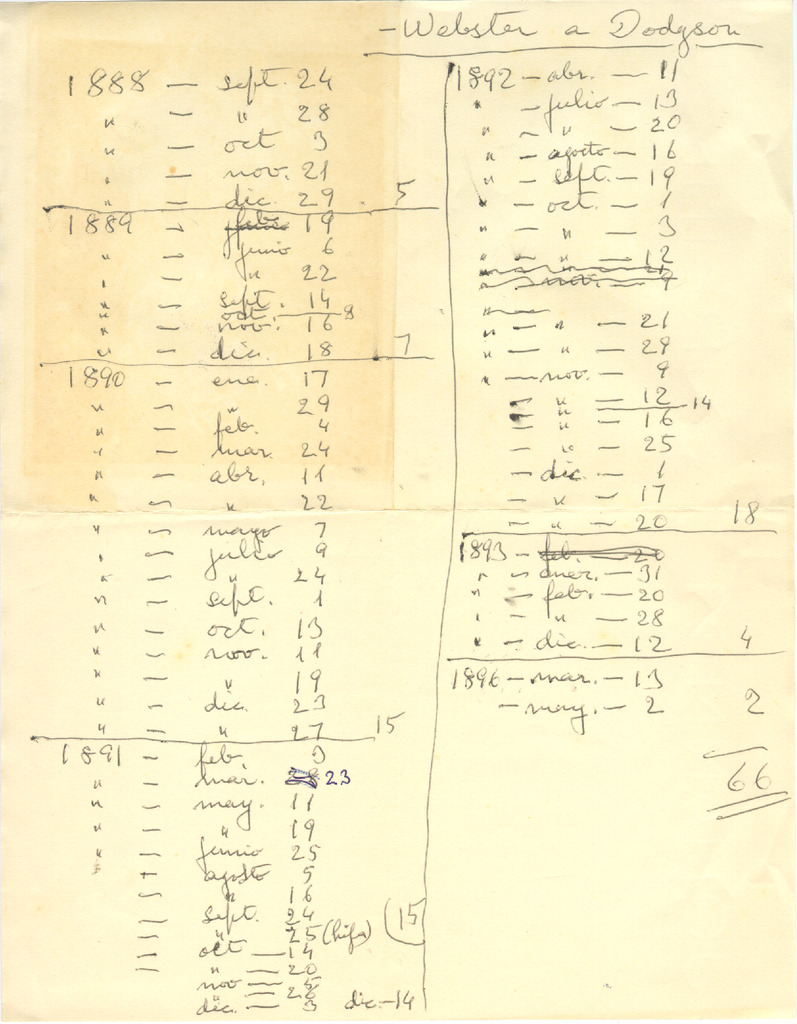 - Webster a Dodgson
1888 — sept. 24
" — " 28
" — oct 3
" — nov. 21
" — dic. 29 5
1889 - feb. 19
" junio 6
" — " 22
" — sept. 14
" oct. — 8
" — nov. 16
" — dic. 18 7
1890 — ene. 17
" — " 29
" — feb. 4
" — mar. 24
" — abr. 11
" — " 22
" — mayo 7
" — julio 9
" — " 24
" — sept. 1
" — oct. 13
" — nov. 11
" " 19
" — dic. 23
" — " 27 15
1891 — feb. 3
" — mar. 23
" — may. 11
" — " 19
" — junio 25
" — agosto 5
— " 16
— sept. 24 (15)
— " 25 (hifa)
— oct — 14
— " — 20
nov — 5
— 26
dic. — 3 dic - 14
1892 — abr. — 11
" — julio — 13
" — " — 20
" — agosto — 16
" — sept. — 19
" — oct. — 1
" — " — 3
" — " — 12
nov. — 9
" — " — 21
" — " — 29
" — nov. — 9
" — 12
" — " — 14
" — " — 16
" — 25
— dic. — 1
— " — 17
— " — 20 18
1893 — feb. — 20
" — ener. — 31
" — febr. — 20
" — " — 28
" — dic. — 12 4
1896 — mar. — 13
— may. — 2 2
66